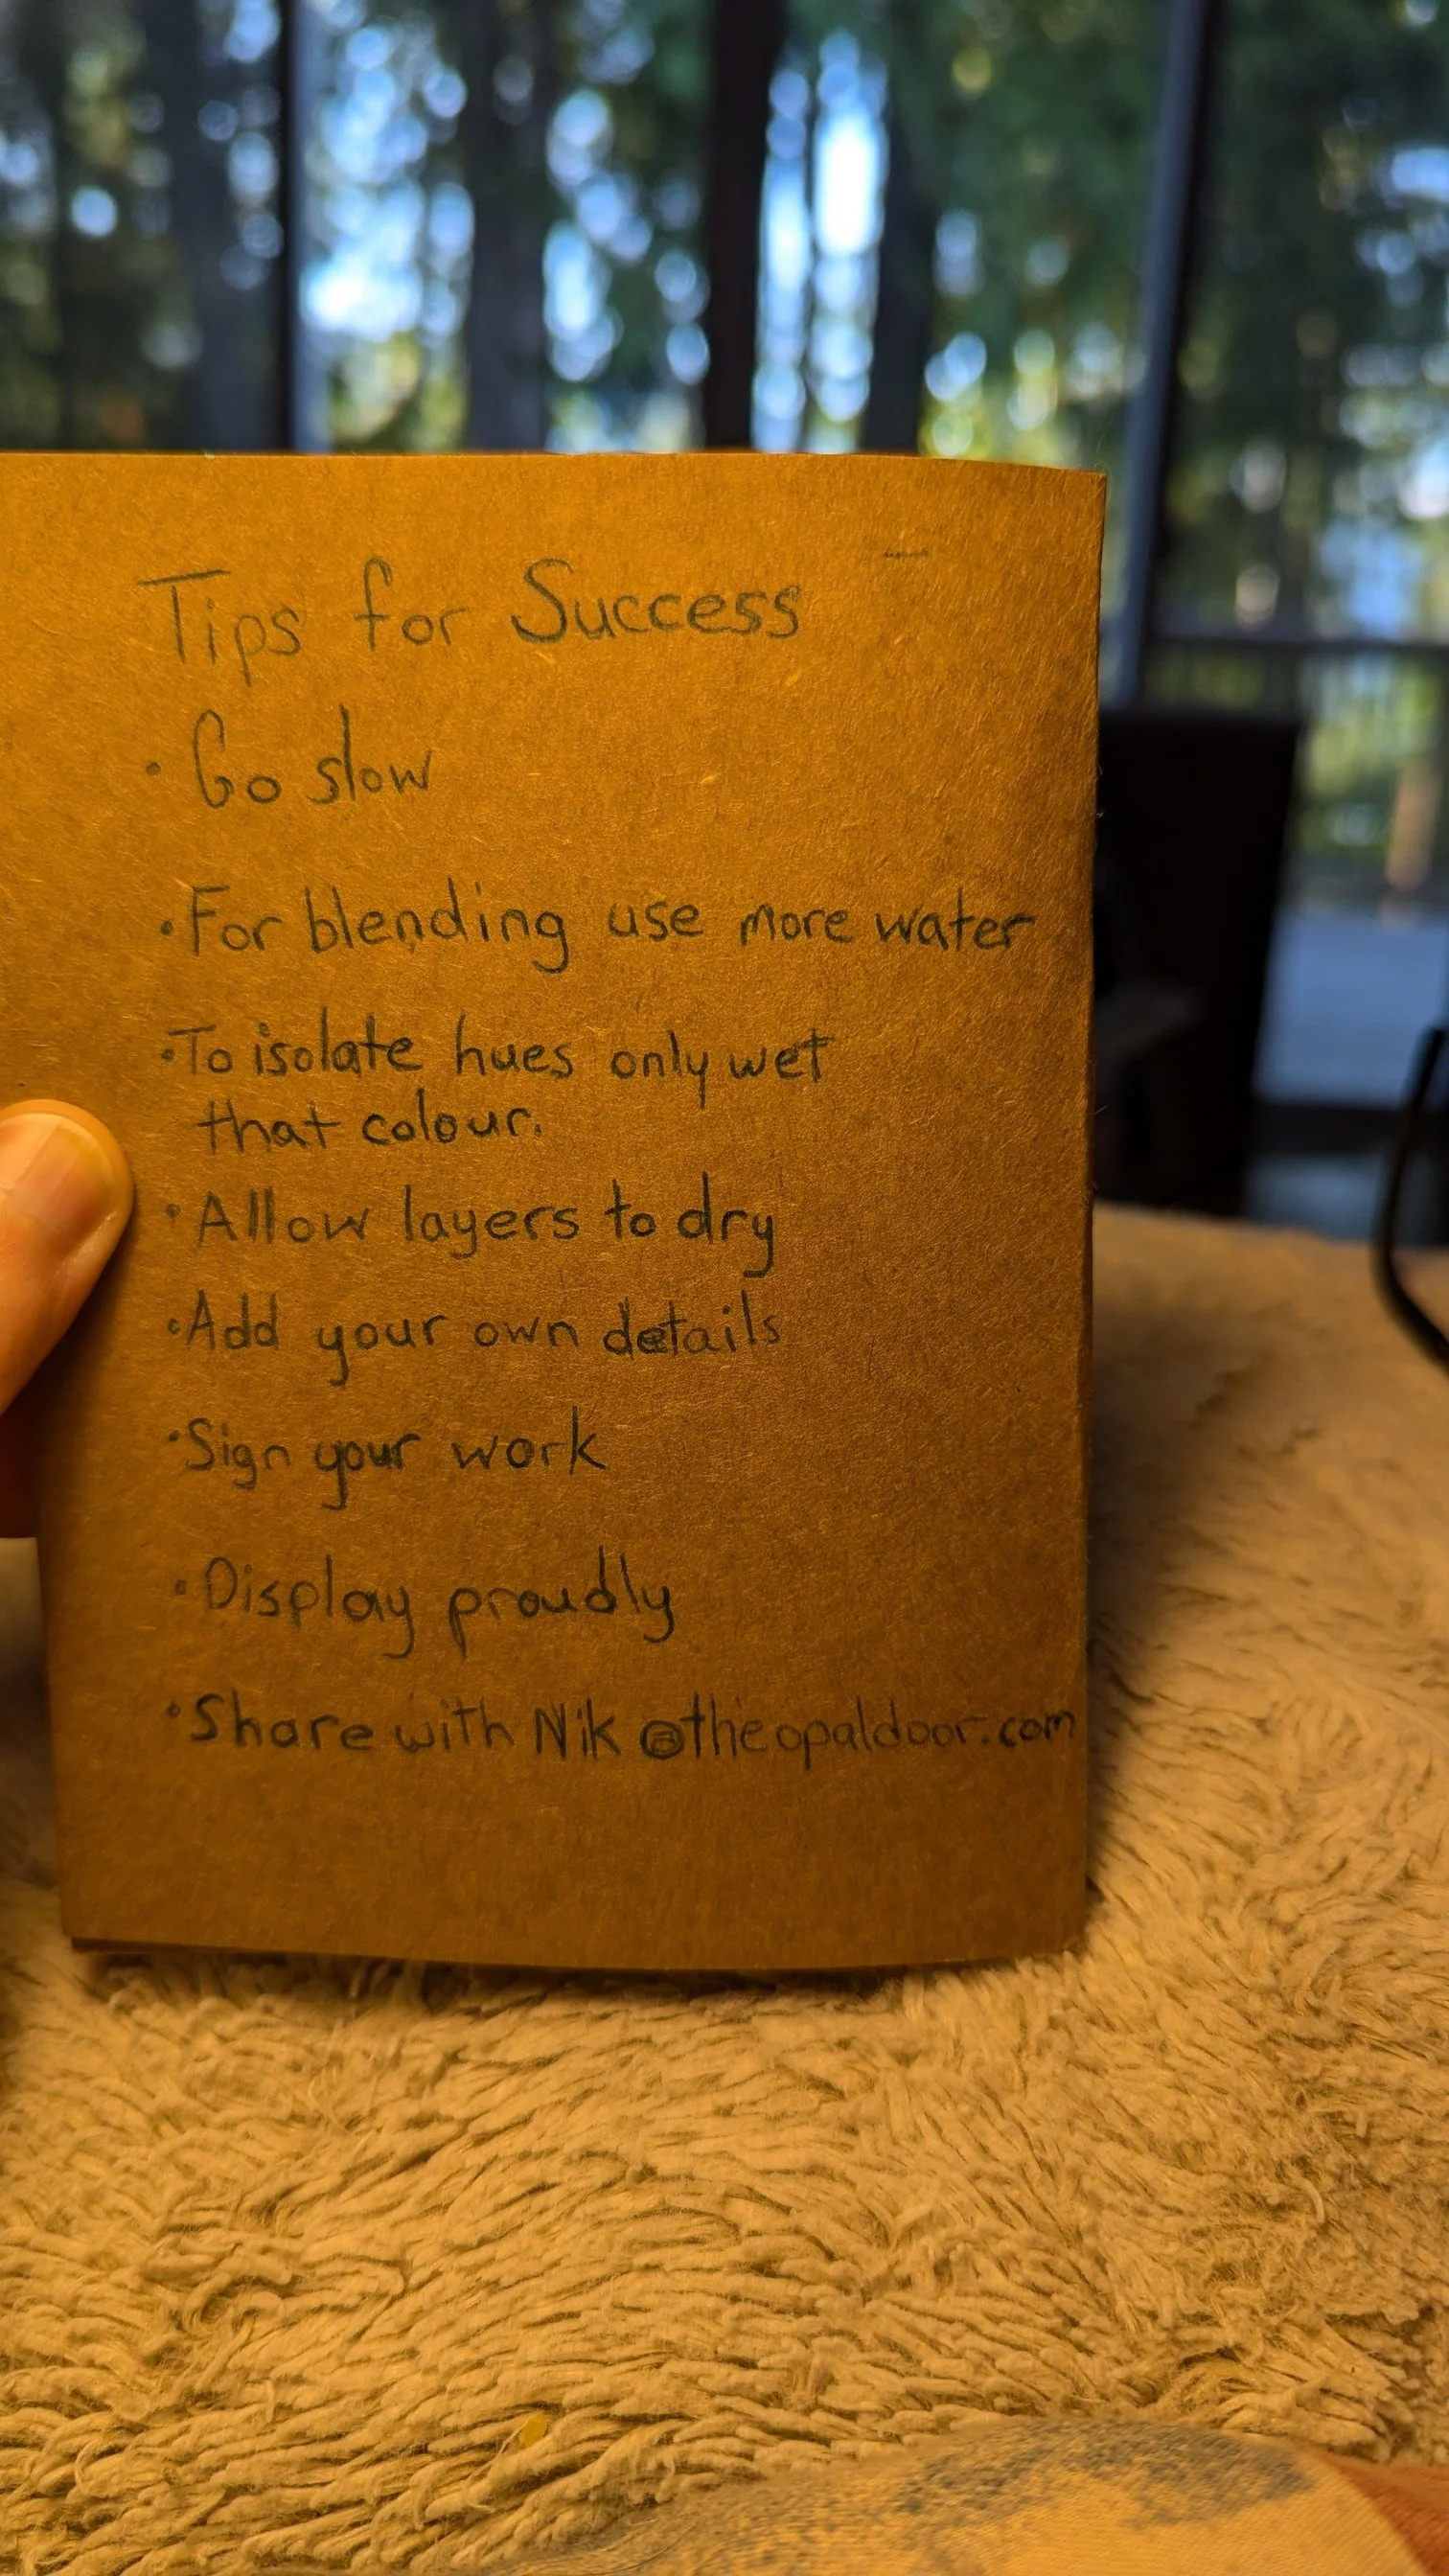 Tips for Success
· Go slow
· For blending use more water
· To isolate hues only wet
that colour.
· Allow layers to dry
· Add your own details
· Sign your work
· Display proudly
· Share with Nik@theopaldoor.com